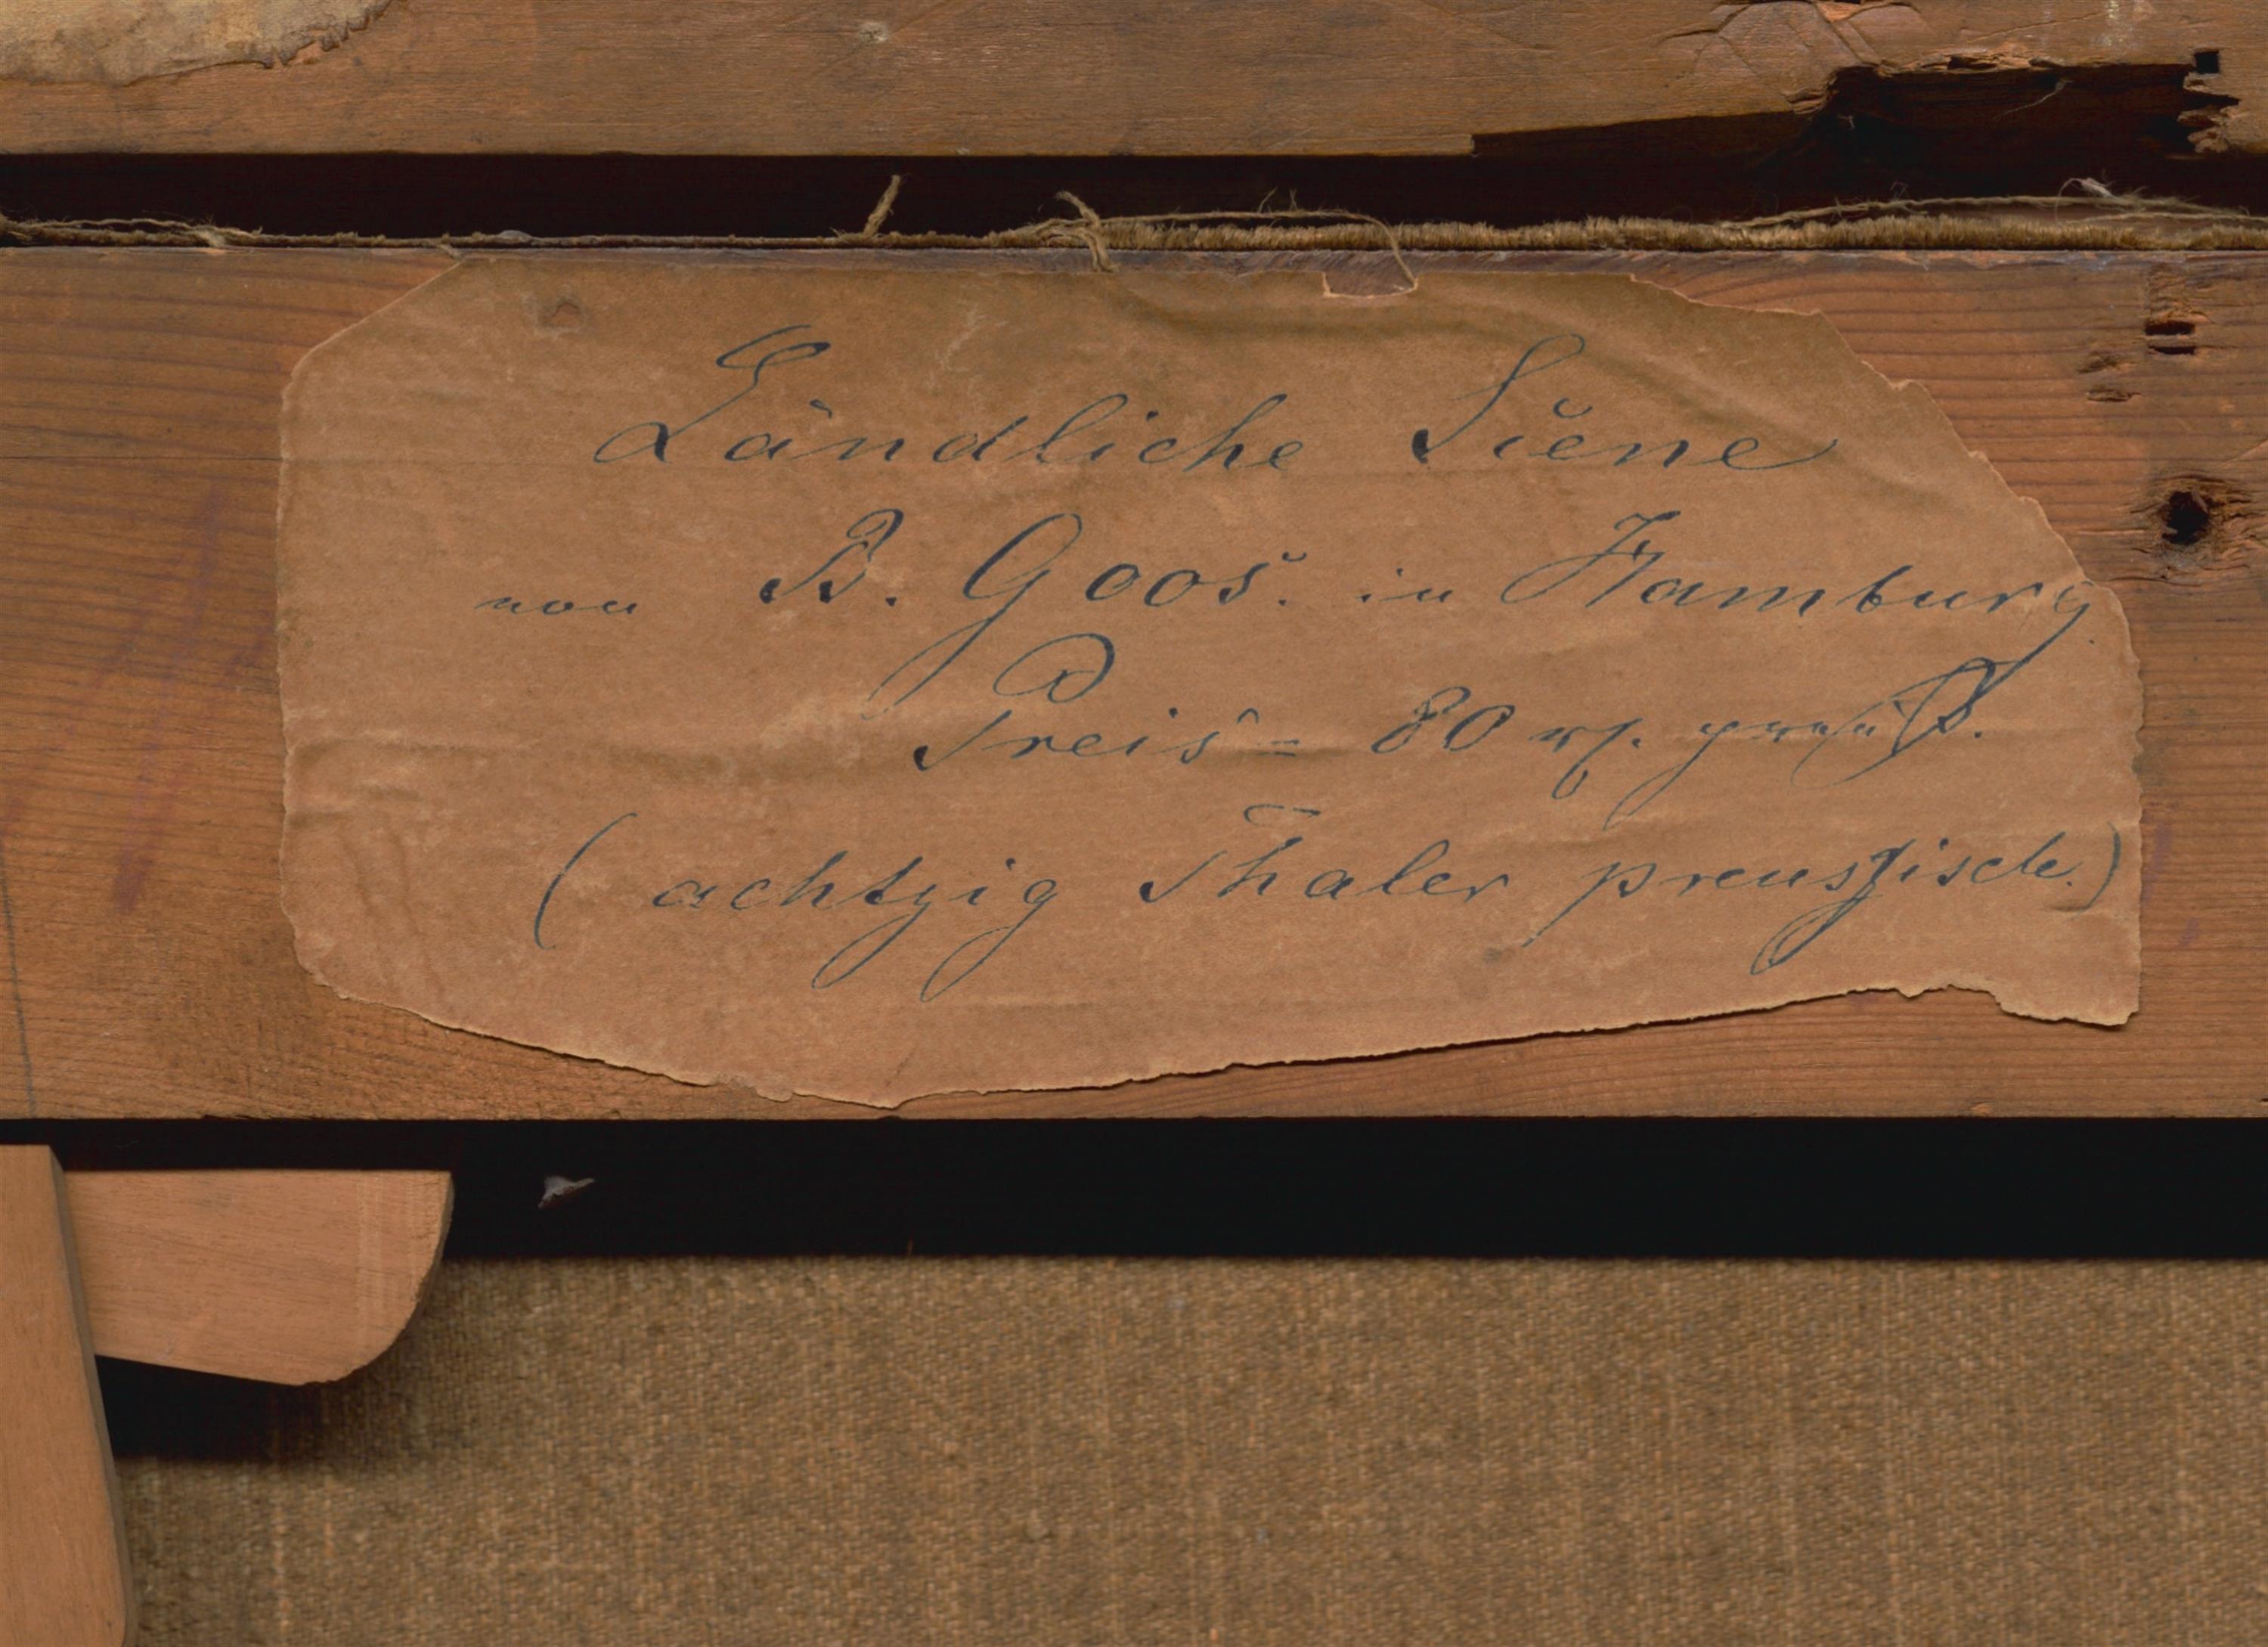 Ländliche Sčene
von B. Goos. in Hamburg.
Preis = 80 rf. preuß.
(achtzig Thaler preussisch.)